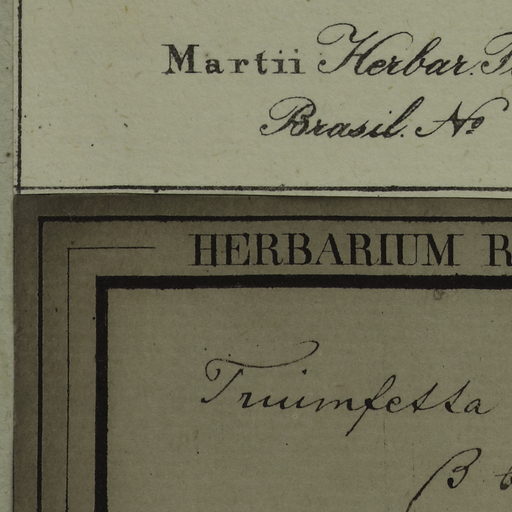 Martii Herbar.
Brasil. No
HERBARIUM R
Triumfetta
β